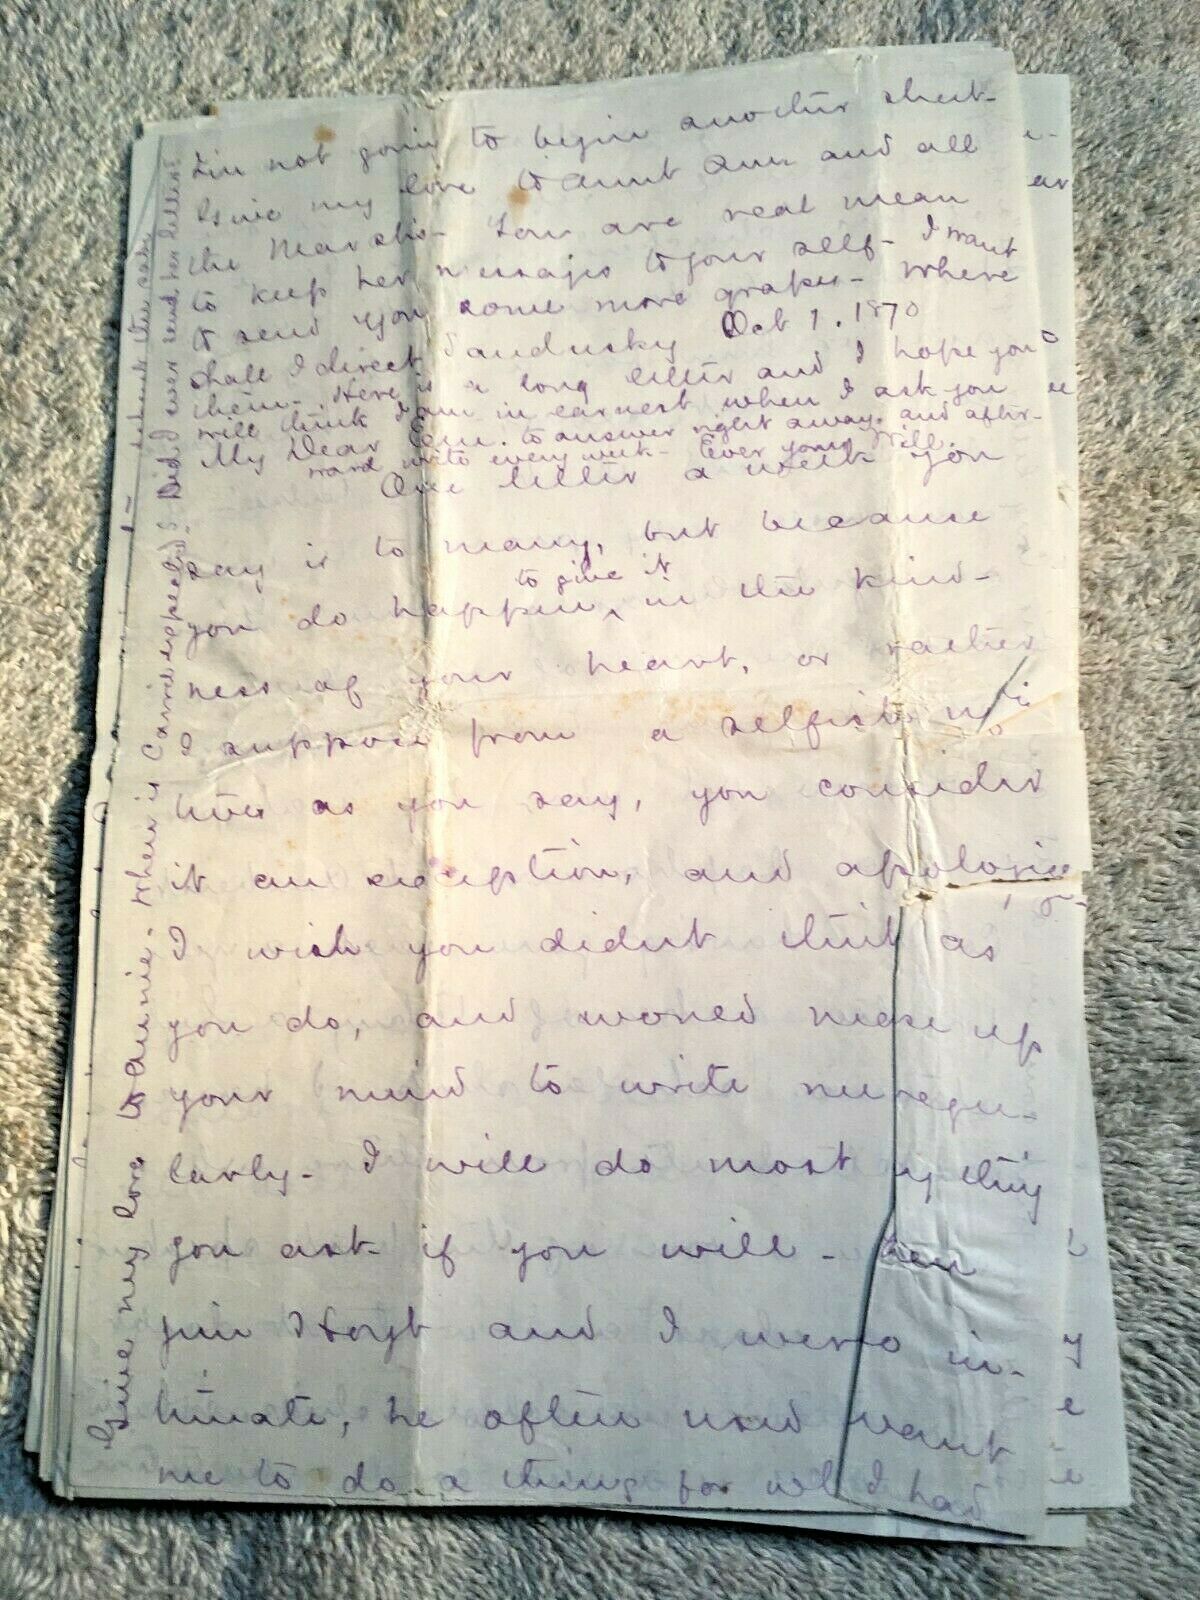 I'm not going to begin another sheet-
Give my love to Aunt Ann and all
the Marshs- You are real mean
to keep her messages to your self- I want
to send you some more grapes- Where
shall I direct
Sandusky Oct 1. 1870
them- Here is a long letter and I hope you
will think I am in earnest when I ask you
My Dear Em. to answer right away. and after-
ward write every week- Ever yours Will.
One letter a week you
say is to many, but because
you do happen ^ in the kind-
to give it
ness of your heart, or rather
I suppose from a selfish mo
tive as you say, you consider
it an exception, and apologize
I wish you didnt think as
you do, and woned make up
your mind to write me regu-
larly- I will do most any thing
you ask if you will- When
Jim Hoyt and I were in-
timate, he often used want
me to do a thing for wh I had
Give my love to Aunie- Where is Carrie Did I ever send her letters